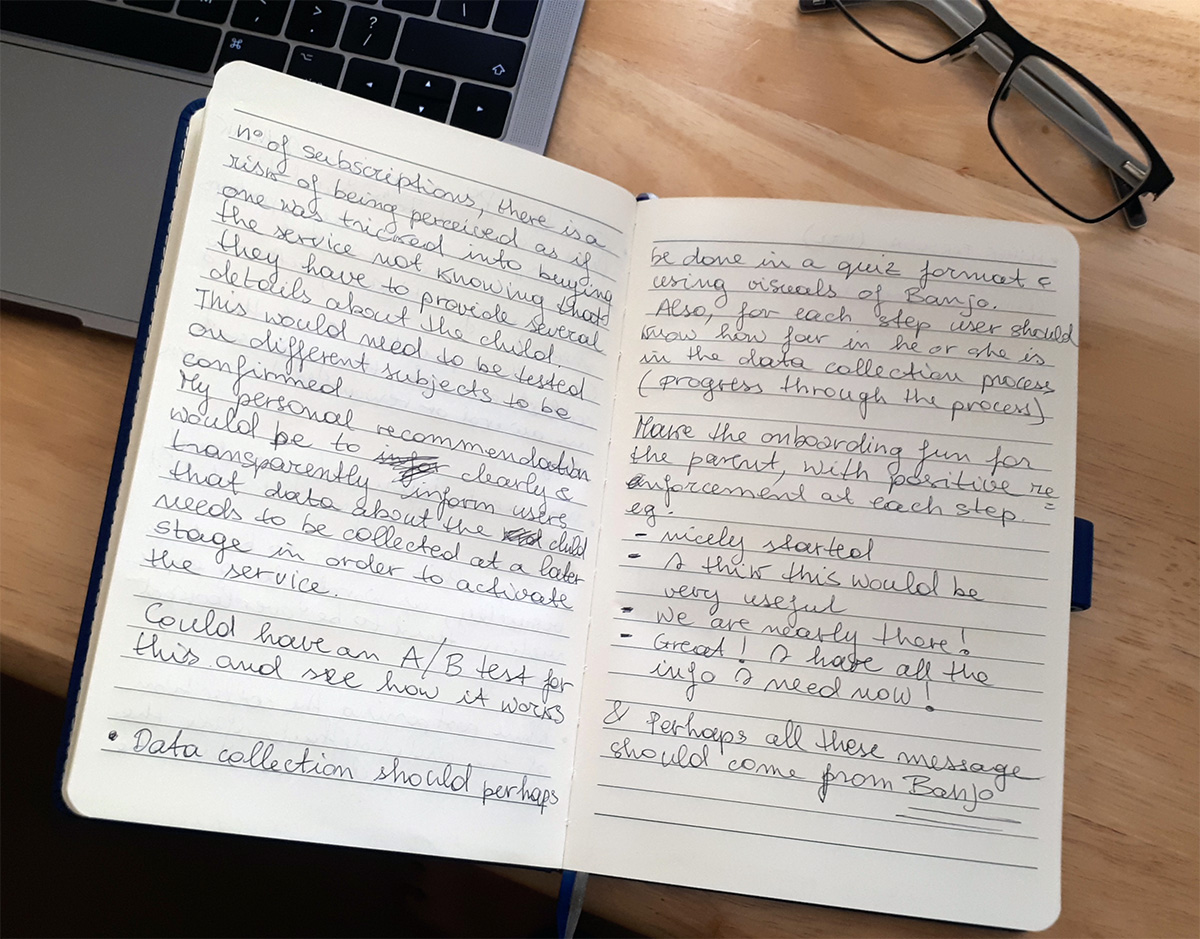 n° of subscriptions, there is a
risk of being perceived as if
one was tricked into buying
the service not knowing that
they have to provide several
details about the child.
This would need to be tested
on different subjects to be
confirmed.
My personal recommendation
would be to clearly &
transparently inform users
that data about the child
needs to be collected at a later
stage in order to activate
the service.
Could have an A/B test for
this and see how it works
• Data collection should perhaps
be done in a quiz format &
using visuals of Banjo.
Also, for each step user should
know how far in he or she is
in the data collection process
(progress through the process)
Make the onboarding fun for
the parent, with positive re=
enforcement at each step.
eg.
- nicely started
- I think this would be
very useful
- we are nearly there!
- Great! I have all the
info I need now!
& Perhaps all these message
should come from Banjo